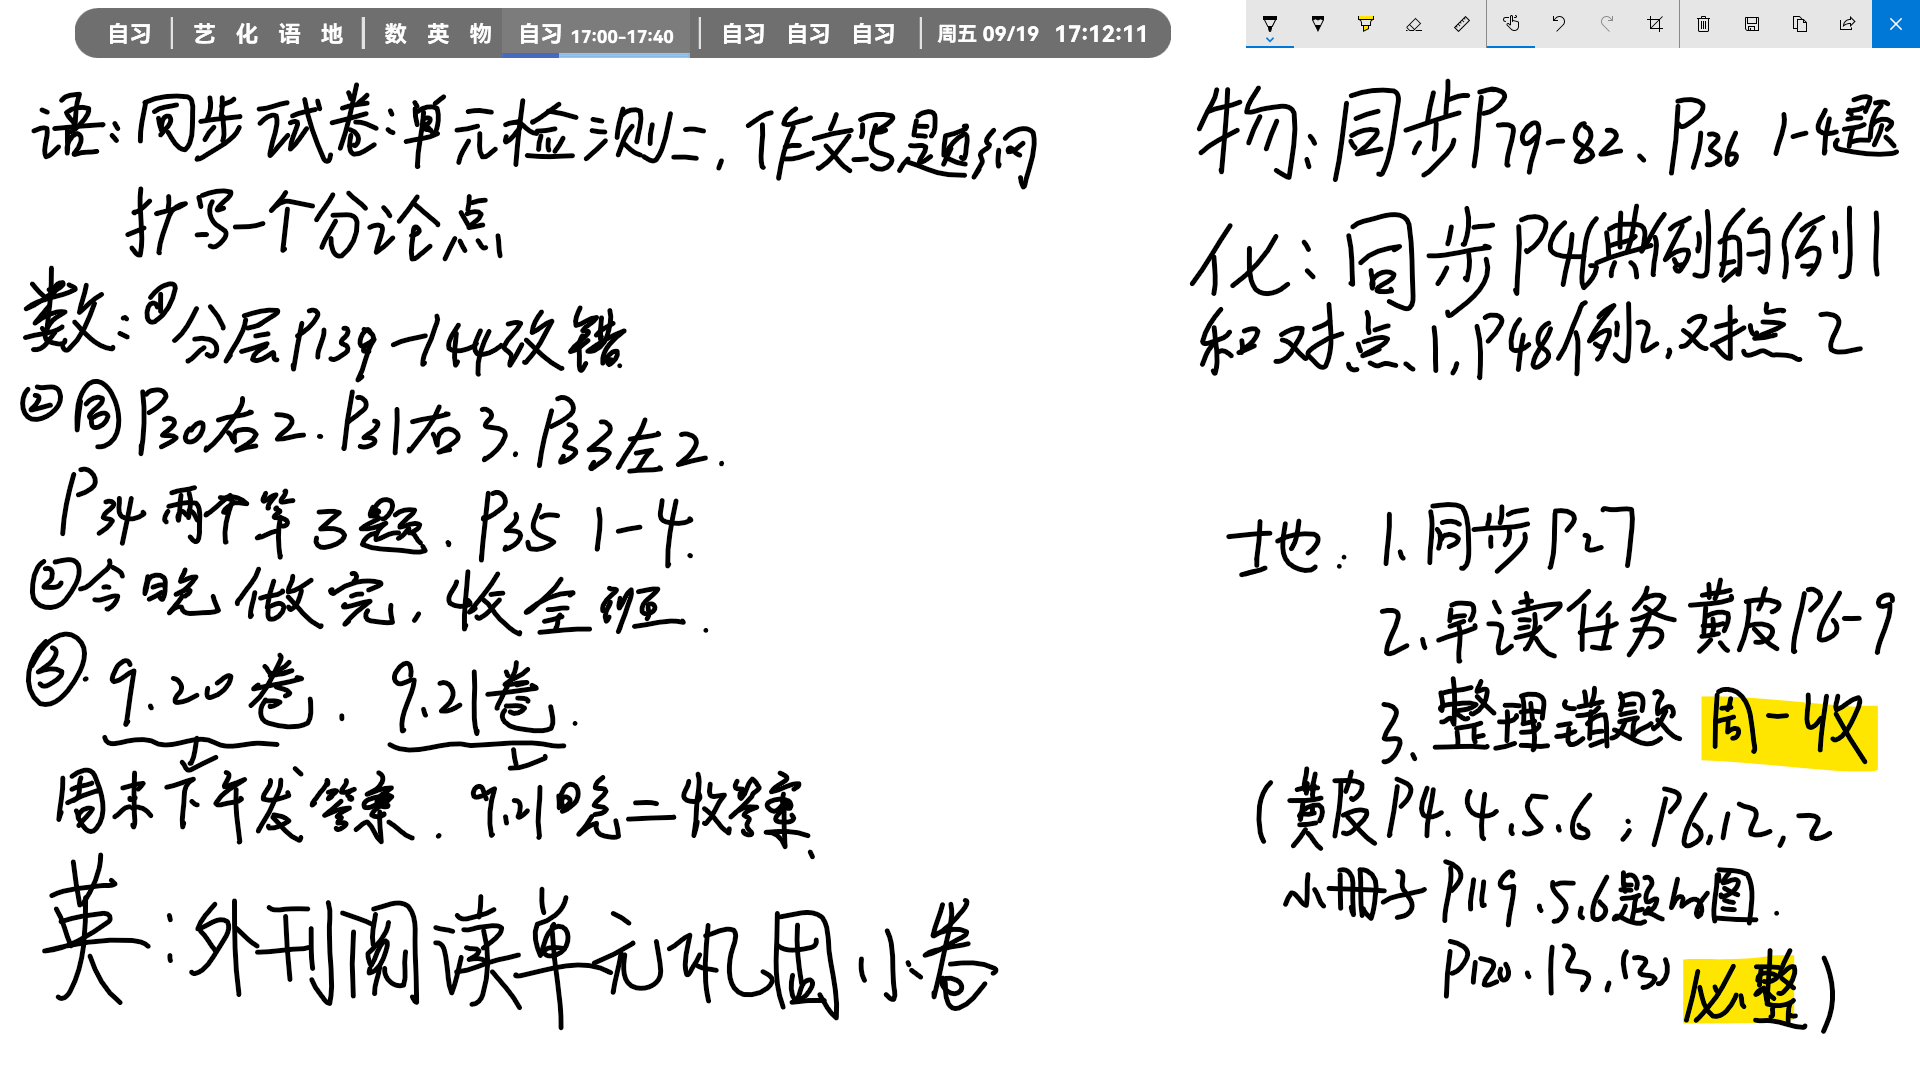 自习 | 艺 化 语 地 | 数 英 物 自习 17:00-17:40 | 自习 自习 自习 | 周五 09/19 17:12:11
语:同步试卷:单元检测二,作文写题纲
抄写一个分论点
数:①分层P139-144改错
②同P30右2.P31右3.P33左2.
P34两个第3题.P35 1-4.
②今晚做完,收全班.
③.9.20卷.9.21卷.
周末下午发答案.9.21日晚二收答案.
英:外刊阅读单元巩固小卷
物:同步P79-82、P136 1-4题
化:同步P46典例的例1
和对点、1,P48例2,对点2
地:1、同步P27
2、早读任务黄皮P6-9
3、整理错题 周一收
(黄皮P4.4.5.6;P6,12,2
小册子P119.5.6题的图.
P120.13,(3) 必整)